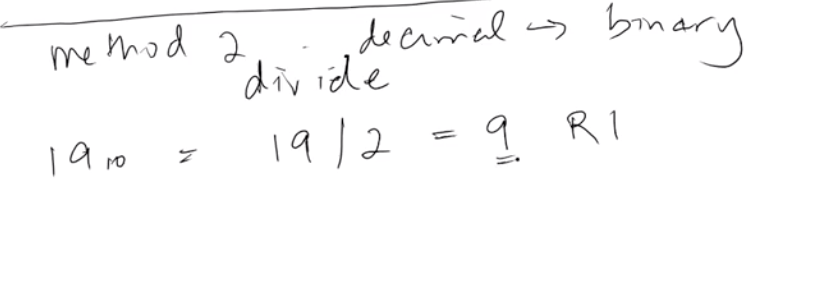 method 2 decimal → binary
divide
19₁₀ = 19/2 = 9 R1